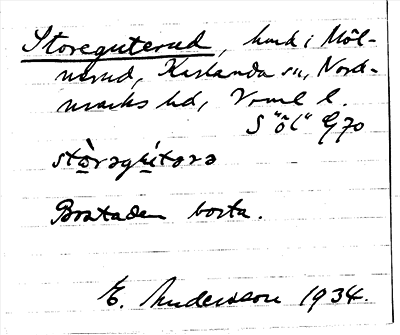 Storeguterud, husk i Möl-
nerud, Karlanda sn, Nord-
marks hd, Vrml l.
S "öl" Eg 70
stòrəgútərə
Bostaden borta.
E. Andersson 1934.